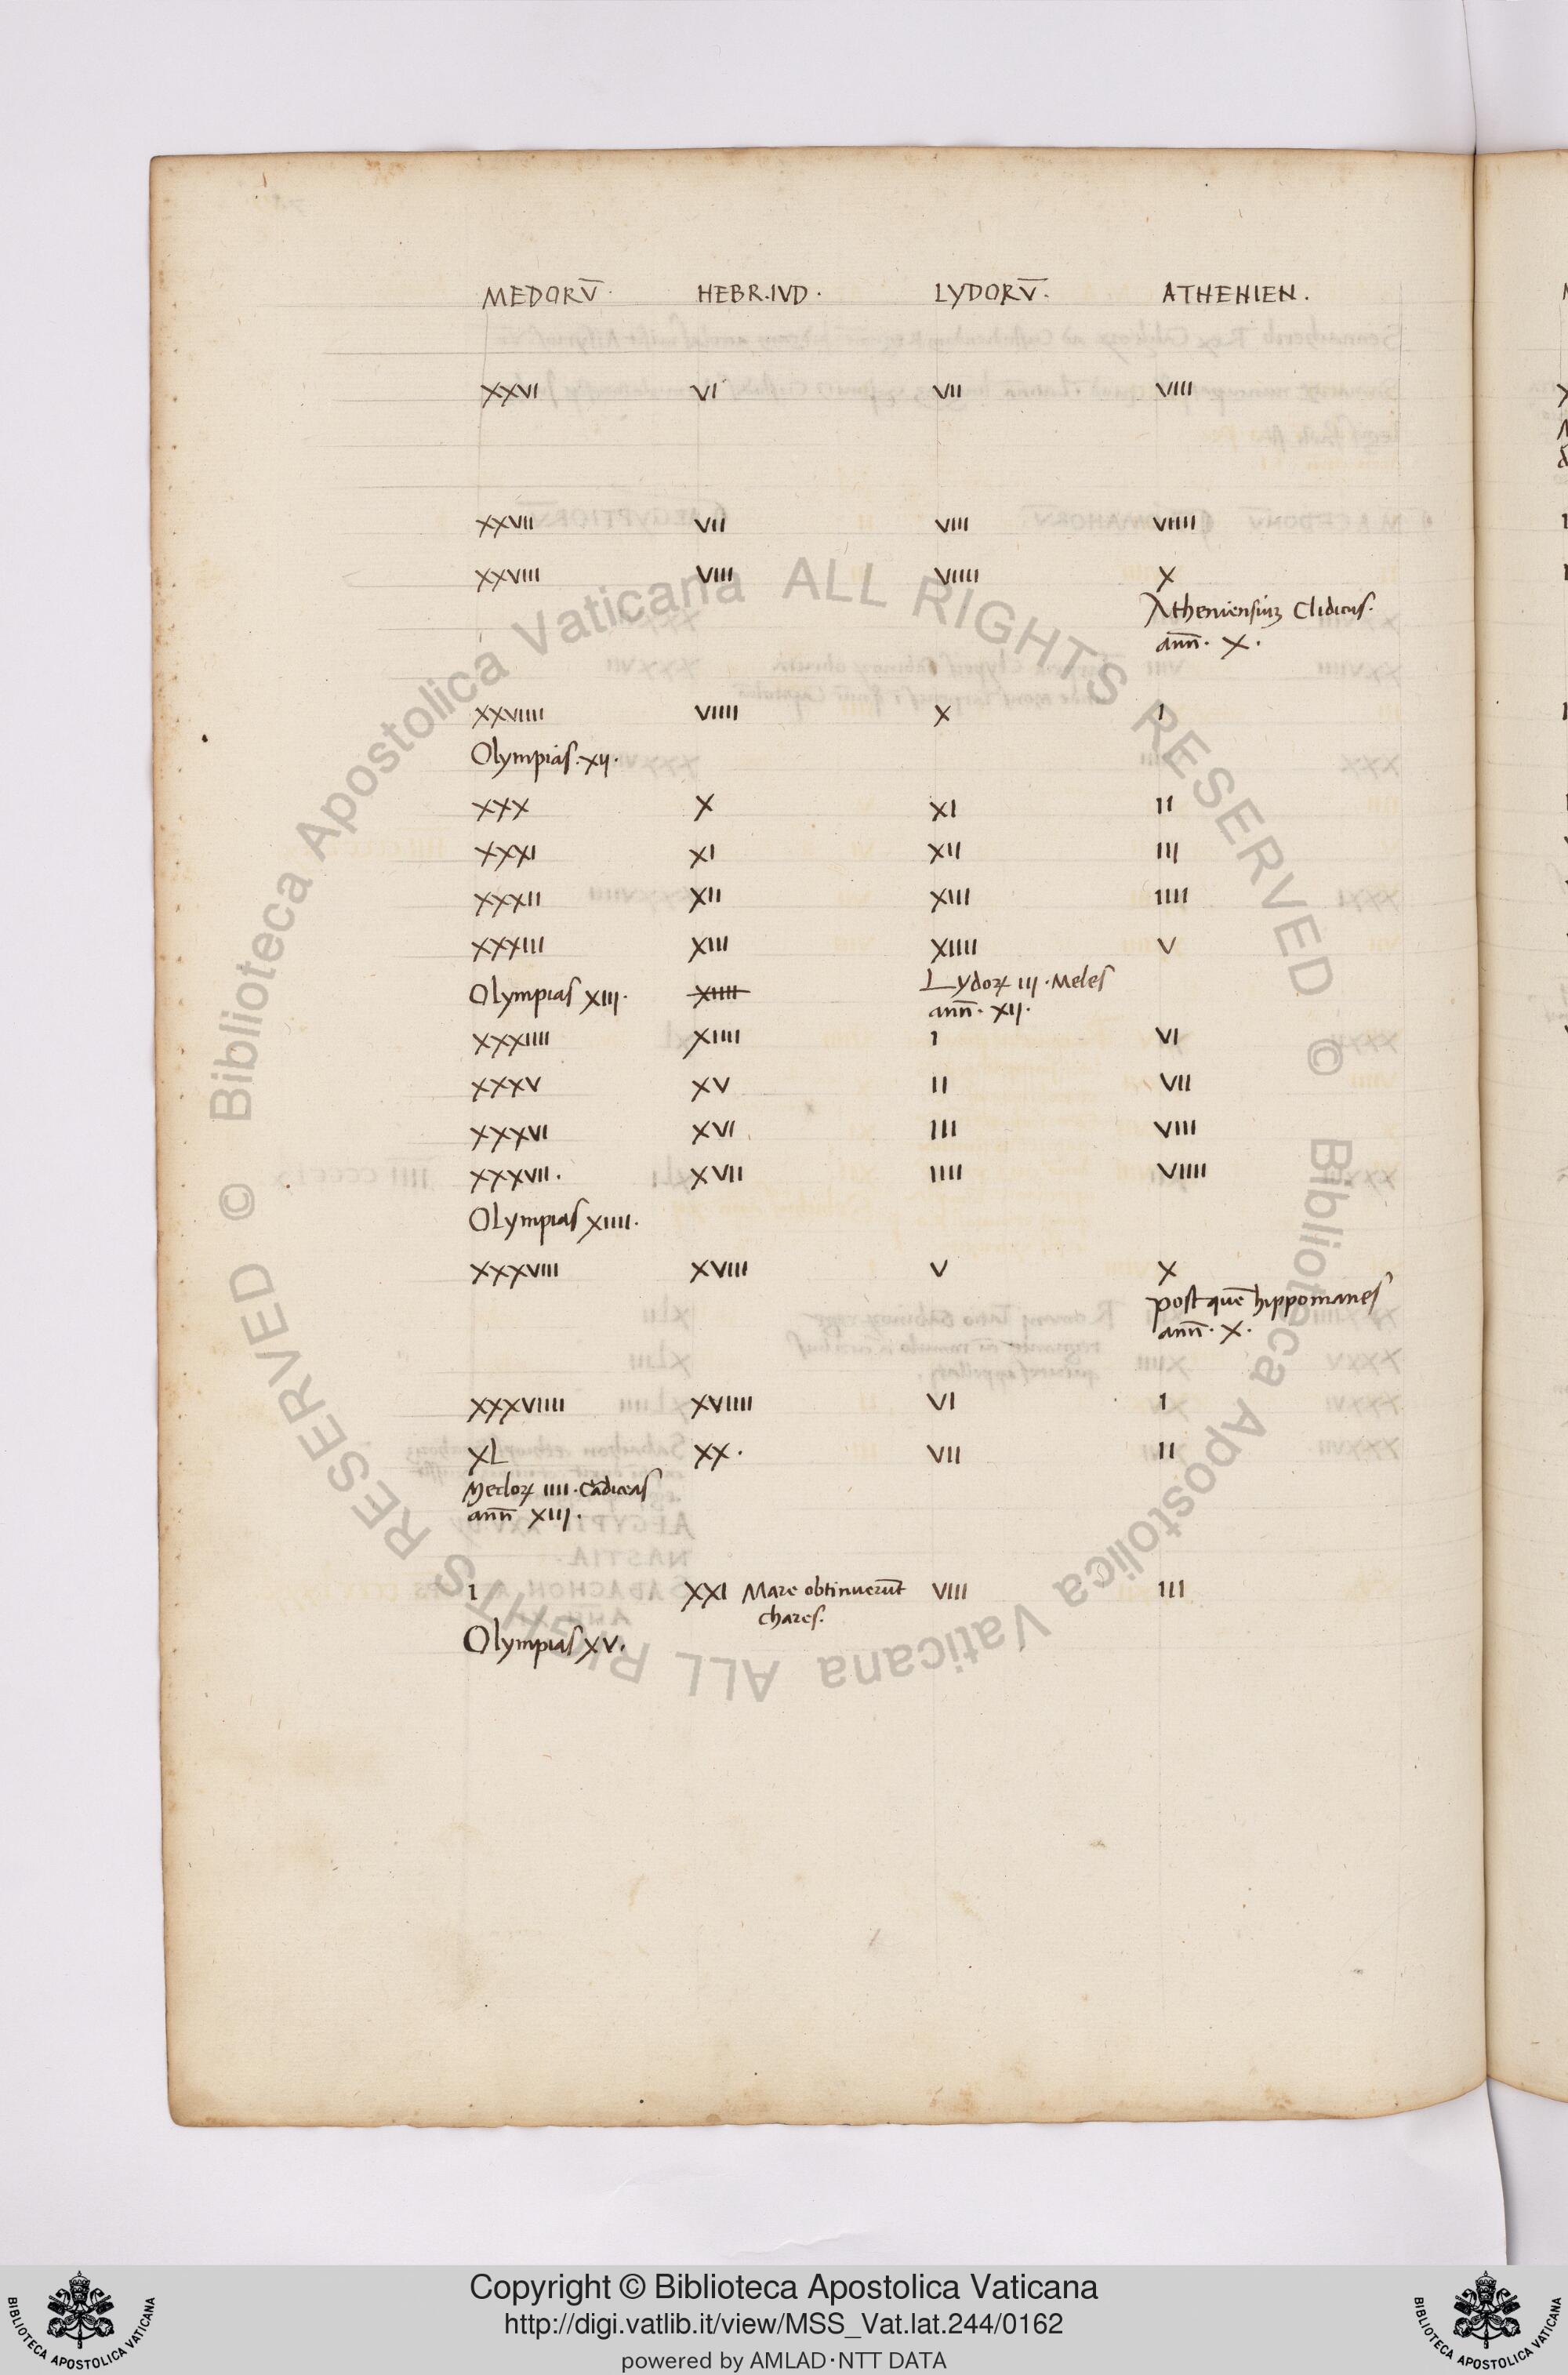 MEDORV̄. HEBR.IVD. LYDORV̄. ATHENIEN.
XXVI VI VII VIII
XXVII VII VIII VIIII
XXVIII VIII VIIII X
Atheniensiuʒ Clidicus.
ann̄. X.
XXVIIII VIIII X I
Olympias. XII.
XXX X XI II
XXXI XI XII III
XXXII XII XIII IIII
XXXIII XIII XIIII V
Olympias XIII. XIIII Lydoꝝ III. Meles
ann̄. XII.
XXXIIII XIIII I VI
XXXV XV II VII
XXXVI XVI III VIII
XXXVII. XVII IIII VIIII
Olympias XIIII.
XXXVIII XVIII V X
post quē hippomanes
ann̄. X.
XXXVIIII XVIIII VI I
XL XX. VII II
Medoꝝ IIII. Cādiceas
ann̄ XIII.
I XXI Mare obtinuerūt VIII III
Chares.
Olympias XV.
Biblioteca Apostolica Vaticana ALL RIGHTS RESERVED ©
Biblioteca Apostolica Vaticana ALL RIGHTS RESERVED ©
Copyright © Biblioteca Apostolica Vaticana
http://digi.vatlib.it/view/MSS_Vat.lat.244/0162
powered by AMLAD·NTT DATA
BIBLIOTECA APOSTOLICA VATICANA
BIBLIOTECA APOSTOLICA VATICANA